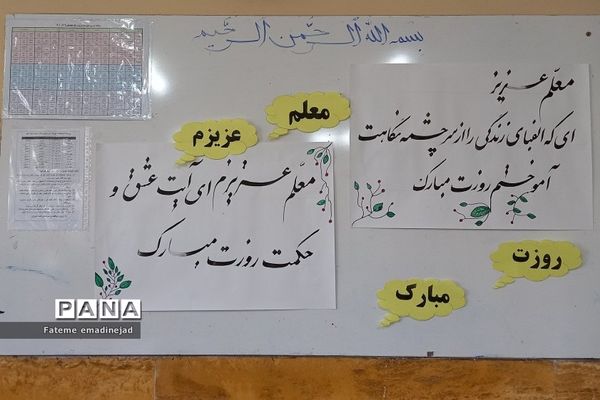 بسم الله الرحمن الرحیم
معلم عزیزم
معلّم عزیز
ای که الفبای زندگی را از سرچشمه نگاهت
آموختم روزت مبارک
معلّم عزیزم ای آیت عشق و
حکمت روزت مبارک
روزت
مبارک
PANA
Fateme emadinejad